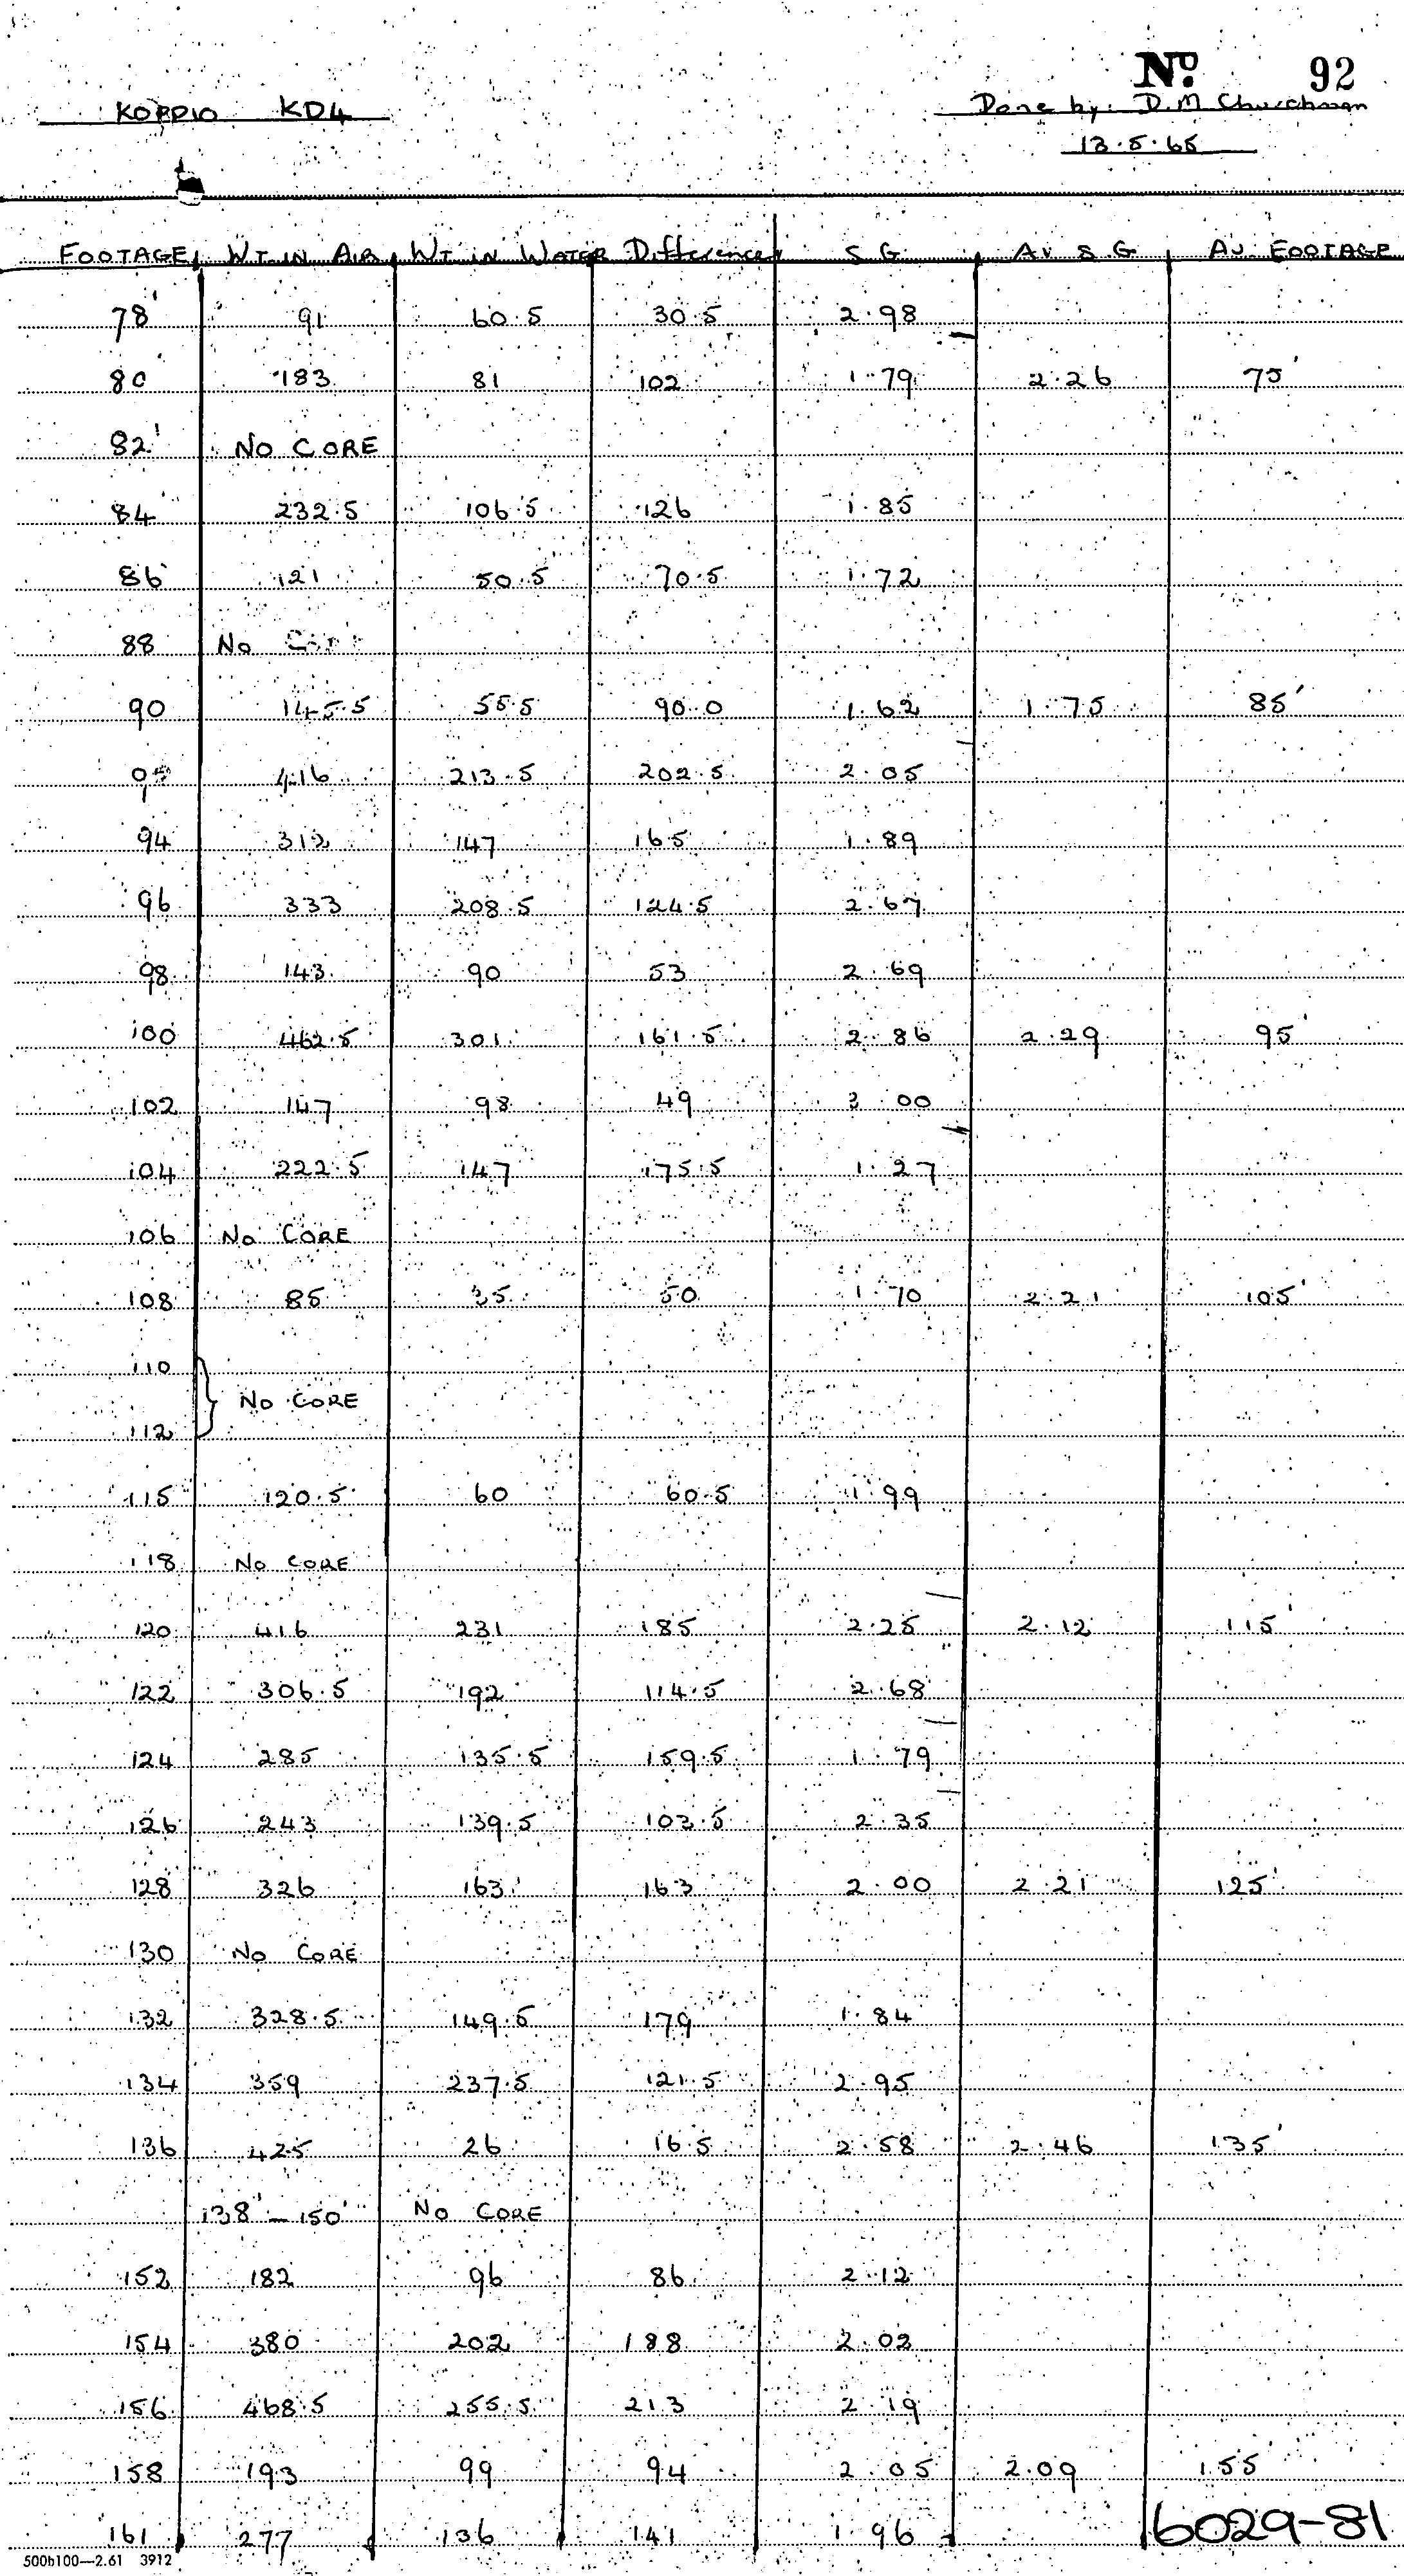 Nº 92
KOPPIO KD4 Done by: D.M Churchman
13.5.65
FOOTAGE WT IN AIR WT IN WATER Difference S G AV S.G AV. FOOTAGE
78' 91 60.5 30.5 2.98
80 183 81 102 1.79 2.26 75'
82' NO CORE
84 232.5 106.5 126 1.85
86 121 50.5 70.5 1.72
88 No
90 145.5 55.5 90.0 1.62 1.75 85'
416 213.5 202.5 2.05
94 312 147 165 1.89
96 333 208.5 124.5 2.67
98 143 90 53 2.69
100 462.5 301 161.5 2.86 2.29 95'
102 147 98 49 3.00
104 222.5 147 175.5 1.27
106 No CORE
108 85 35 50 1.70 2.21 105'
110
No CORE
112
115 120.5 60 60.5 1.99
118 No CORE
120 416 231 185 2.25 2.12 115'
122 306.5 192 114.5 2.68
124 285 135.5 159.5 1.79
126 243 139.5 103.5 2.35
128 326 163 163 2.00 2.21 125'
130 No CORE
132 328.5 149.5 179 1.84
134 359 237.5 121.5 2.95
136 425 26 16.5 2.58 2.46 135'
138' - 150' No CORE
152 182 96 86 2.12
154 380 202 188 2.02
156 468.5 255.5 213 2.19
158 193 99 94 2.05 2.09 155
161 277 136 141 1.96
6029-81
500b100—2.61 3912